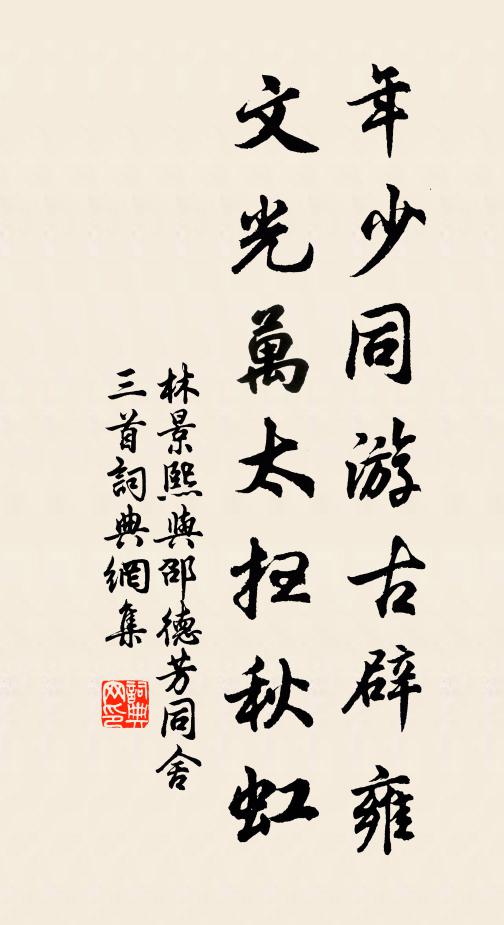 年少同游古辟雍
文光萬太扫秋虹
林景熙與邵德芳同舍
三首詞典網集
詞典网印